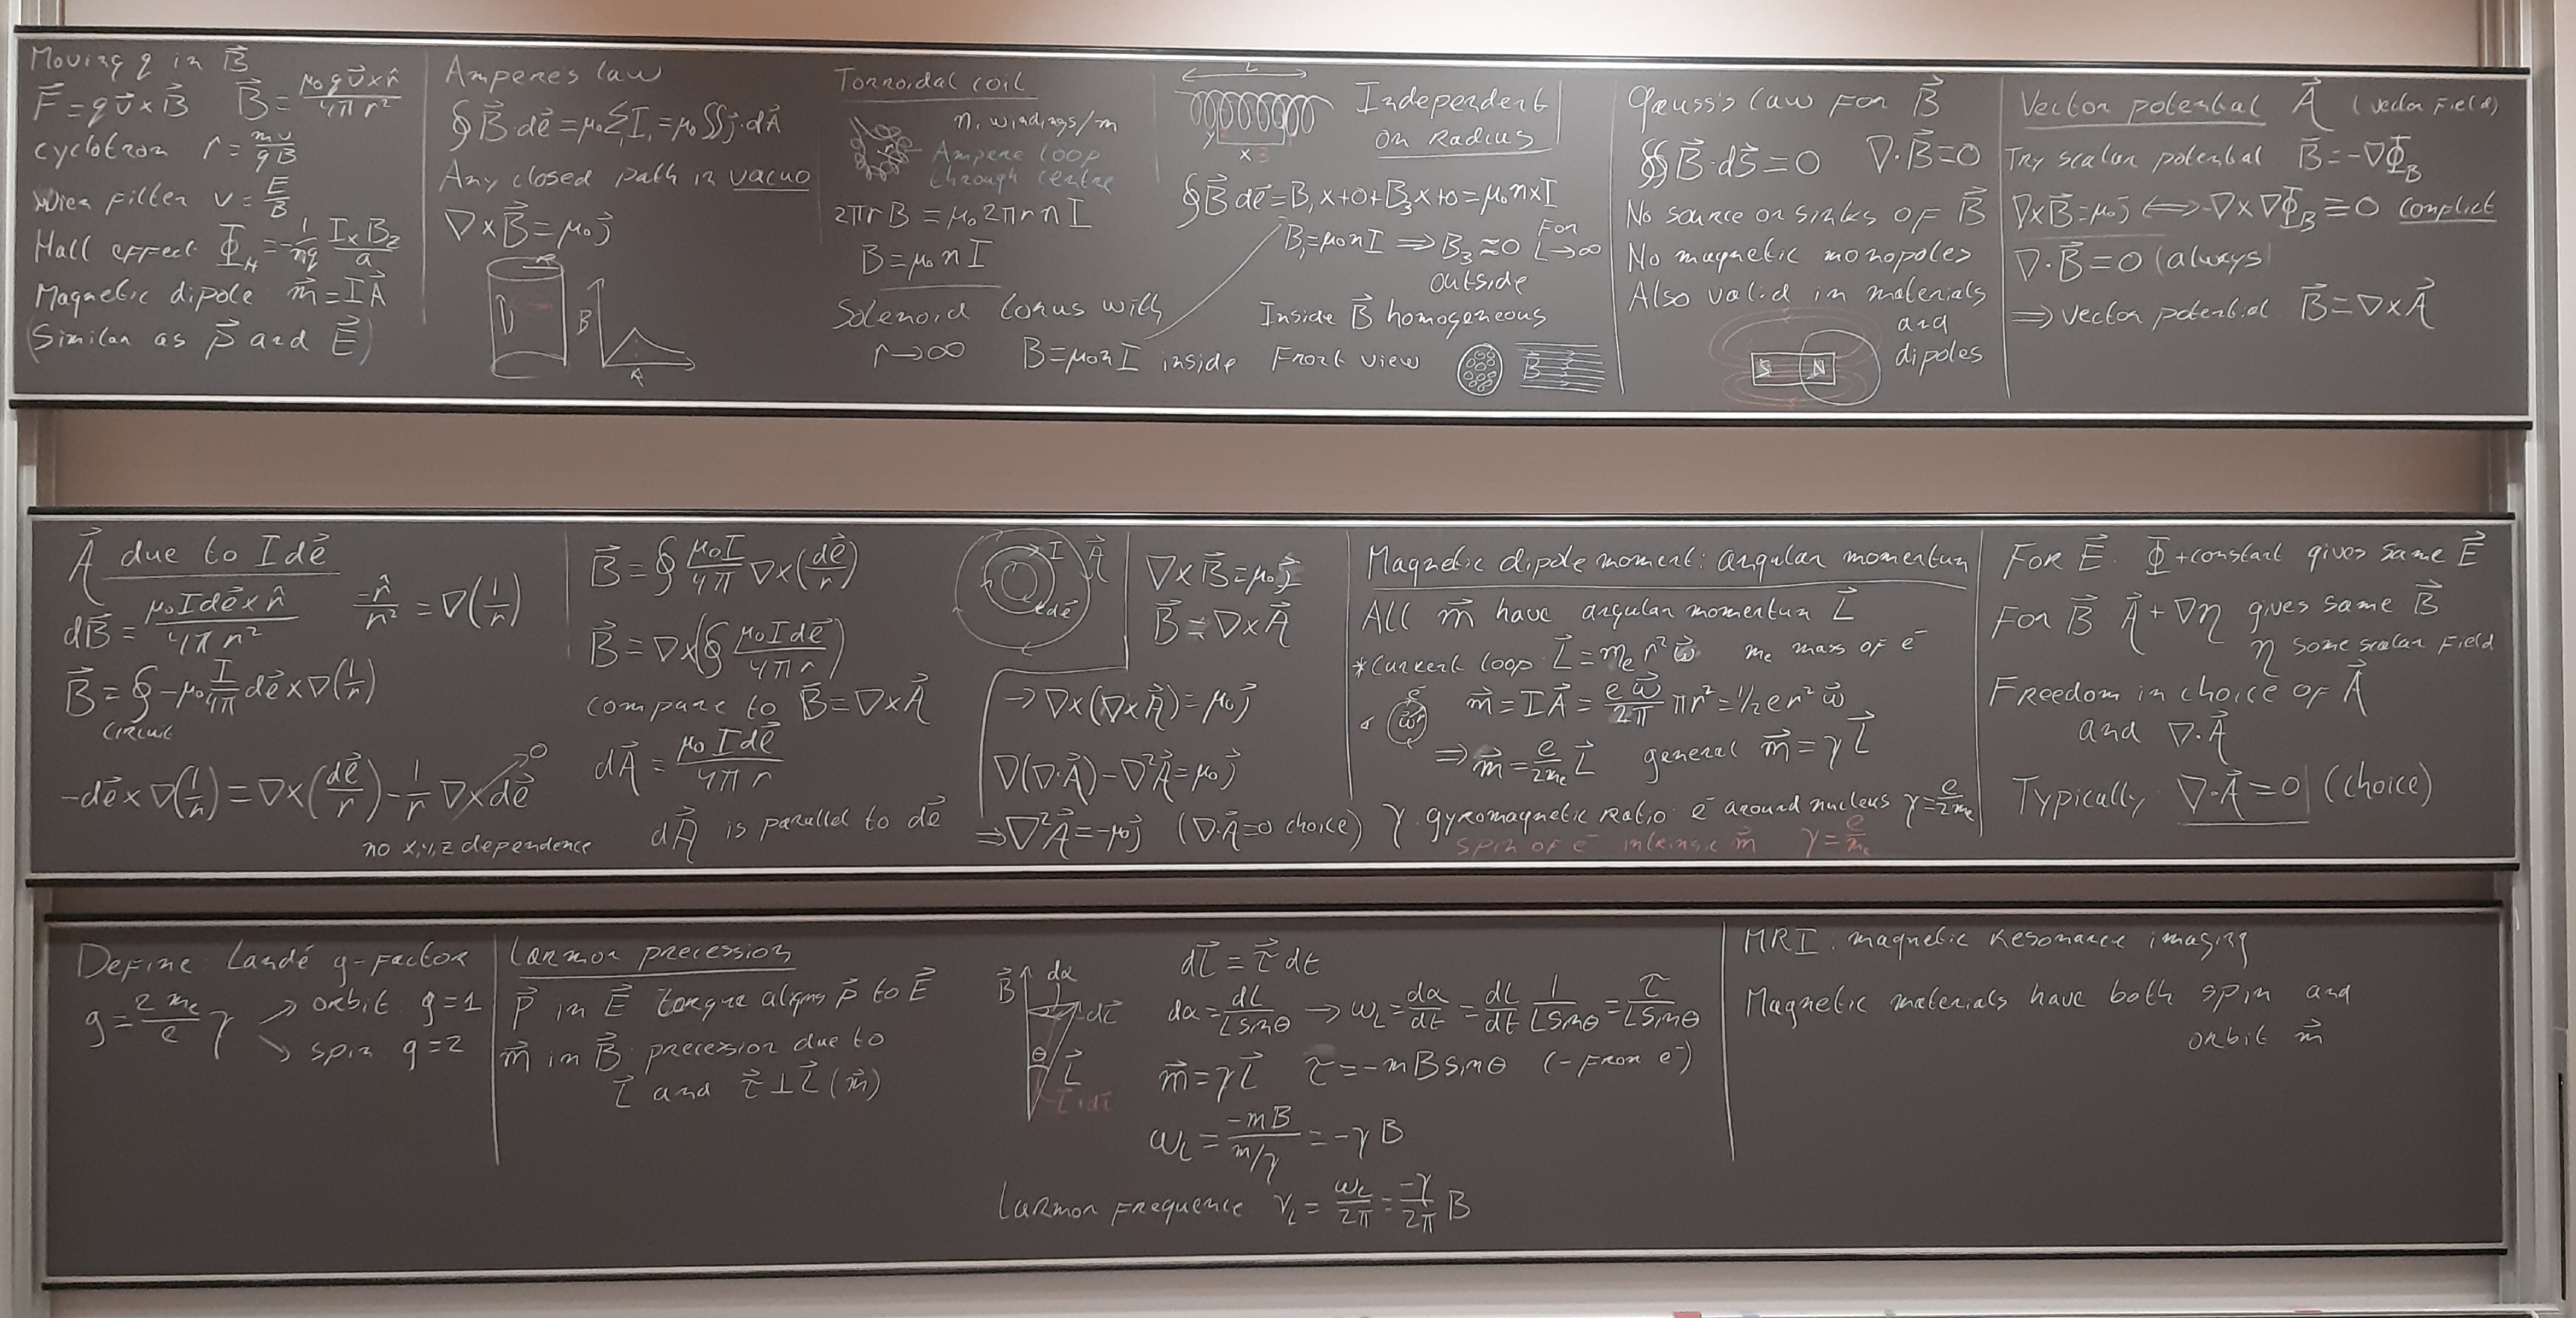 Moving q in B⃗
F⃗ = q v⃗ × B⃗   B⃗ = μ₀ q v⃗ × r̂ / 4π r²
cyclotron r = mv / qB
Wien filter v = E / B
Hall effect Φ_H = -1/nq I_x B_z / a
Magnetic dipole m⃗ = I A⃗
(Similar as p⃗ and E⃗)
Amperes law
∮ B⃗·dℓ⃗ = μ₀ Σ Iᵢ = μ₀ ∬ j⃗·dA⃗
Any closed path in vacuo
∇ × B⃗ = μ₀ j⃗
R
B
R
Torroidal coil
n: windings/m
r
Ampere loop
through centre
2πr B = μ₀ 2πr n I
B = μ₀ n I
Solenoid torus with
r → ∞   B = μ₀ n I inside
L
y
x 3
Independent
on Radius
∮ B⃗ dℓ⃗ = B₁ x + 0 + B₃ x + 0 = μ₀ n x I
B₁ = μ₀ n I ⇒ B₃ ≈ 0 For L → ∞
outside
Inside B⃗ homogeneous
Front view
B⃗
Gauss's law for B⃗
∯ B⃗·dS⃗ = 0   ∇·B⃗ = 0
No source or sinks of B⃗
No magnetic monopoles
Also valid in materials
and
dipoles
S N
Vector potential A⃗ (vector field)
Try scalar potential B⃗ = -∇Φ_B
∇ × B⃗ = μ₀ j⃗ ⟺ -∇ × ∇Φ_B ≡ 0 conflict
∇·B⃗ = 0 (always)
⇒ vector potential B⃗ = ∇ × A⃗
A⃗ due to I dℓ⃗
dB⃗ = μ₀ I dℓ⃗ × r̂ / 4π r²   -r̂ / r² = ∇(1/r)
B⃗ = ∮ -μ₀ I/4π dℓ⃗ × ∇(1/r)
circuit
-dℓ⃗ × ∇(1/r) = ∇ × (dℓ⃗/r) - 1/r ∇ × dℓ⃗ → 0
no x,y,z dependence
B⃗ = ∮ μ₀ I / 4π ∇ × (dℓ⃗/r)
B⃗ = ∇ × (∮ μ₀ I dℓ⃗ / 4π r)
compare to B⃗ = ∇ × A⃗
dA⃗ = μ₀ I dℓ⃗ / 4π r
dA⃗ is parallel to dℓ⃗
I A⃗
dℓ⃗
∇ × B⃗ = μ₀ j⃗
B⃗ = ∇ × A⃗
→ ∇ × (∇ × A⃗) = μ₀ j⃗
∇(∇·A⃗) - ∇²A⃗ = μ₀ j⃗
⇒ ∇²A⃗ = -μ₀ j⃗ (∇·A⃗ = 0 choice)
Magnetic dipole moment: angular momentum
All m⃗ have angular momentum L⃗
*Current loop L⃗ = mₑ r² ω⃗   mₑ mass of e⁻
m⃗ = I A⃗ = e ω⃗ / 2π π r² = 1/2 e r² ω⃗
⇒ m⃗ = e / 2mₑ L⃗   general m⃗ = γ L⃗
γ gyromagnetic ratio. e⁻ around nucleus γ = e / 2mₑ
spin of e⁻ intrinsic m⃗ γ = e / mₑ
For E⃗. Φ + constant gives same E⃗
For B⃗ A⃗ + ∇η gives same B⃗
η some scalar field
Freedom in choice of A⃗
and ∇·A⃗
Typically ∇·A⃗ = 0 (choice)
Define: Landé g-factor
g = 2 mₑ / e γ → orbit g = 1
↘ spin g = 2
Larmor precession
p⃗ in E⃗ torque aligns p⃗ to E⃗
m⃗ in B⃗: precession due to
L⃗ and τ⃗ ⊥ L⃗ (m⃗)
B⃗ dα
dL⃗
θ L⃗
L⃗ + dL⃗
dL⃗ = τ⃗ dt
dα = dL / L sinθ → ω_L = dα/dt = dL/dt 1 / L sinθ = τ / L sinθ
m⃗ = γ L⃗   τ = -m B sinθ (- from e⁻)
ω_L = -m B / m/γ = -γ B
Larmor frequence ν_L = ω_L / 2π = -γ / 2π B
MRI. magnetic Resonance imaging
Magnetic materials have both spin and
orbit m⃗